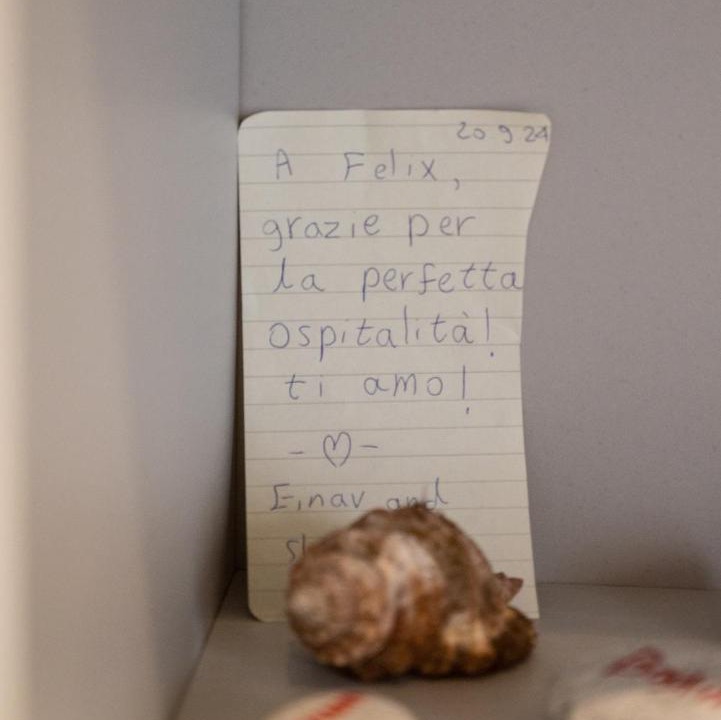 20 9 24
A Felix,
grazie per
la perfetta
ospitalità!
ti amo!
-♡-
Einav and